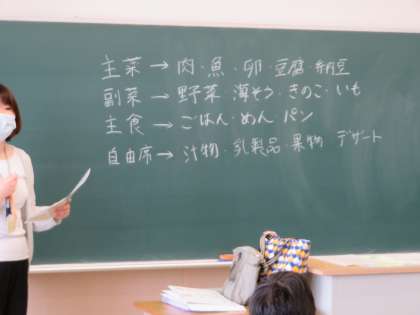 主菜→肉・魚・卵・豆腐・納豆
副菜→野菜 海そう・きのこ・いも
主食→ごはん・めん パン
自由席→汁物・乳製品・果物 デザート